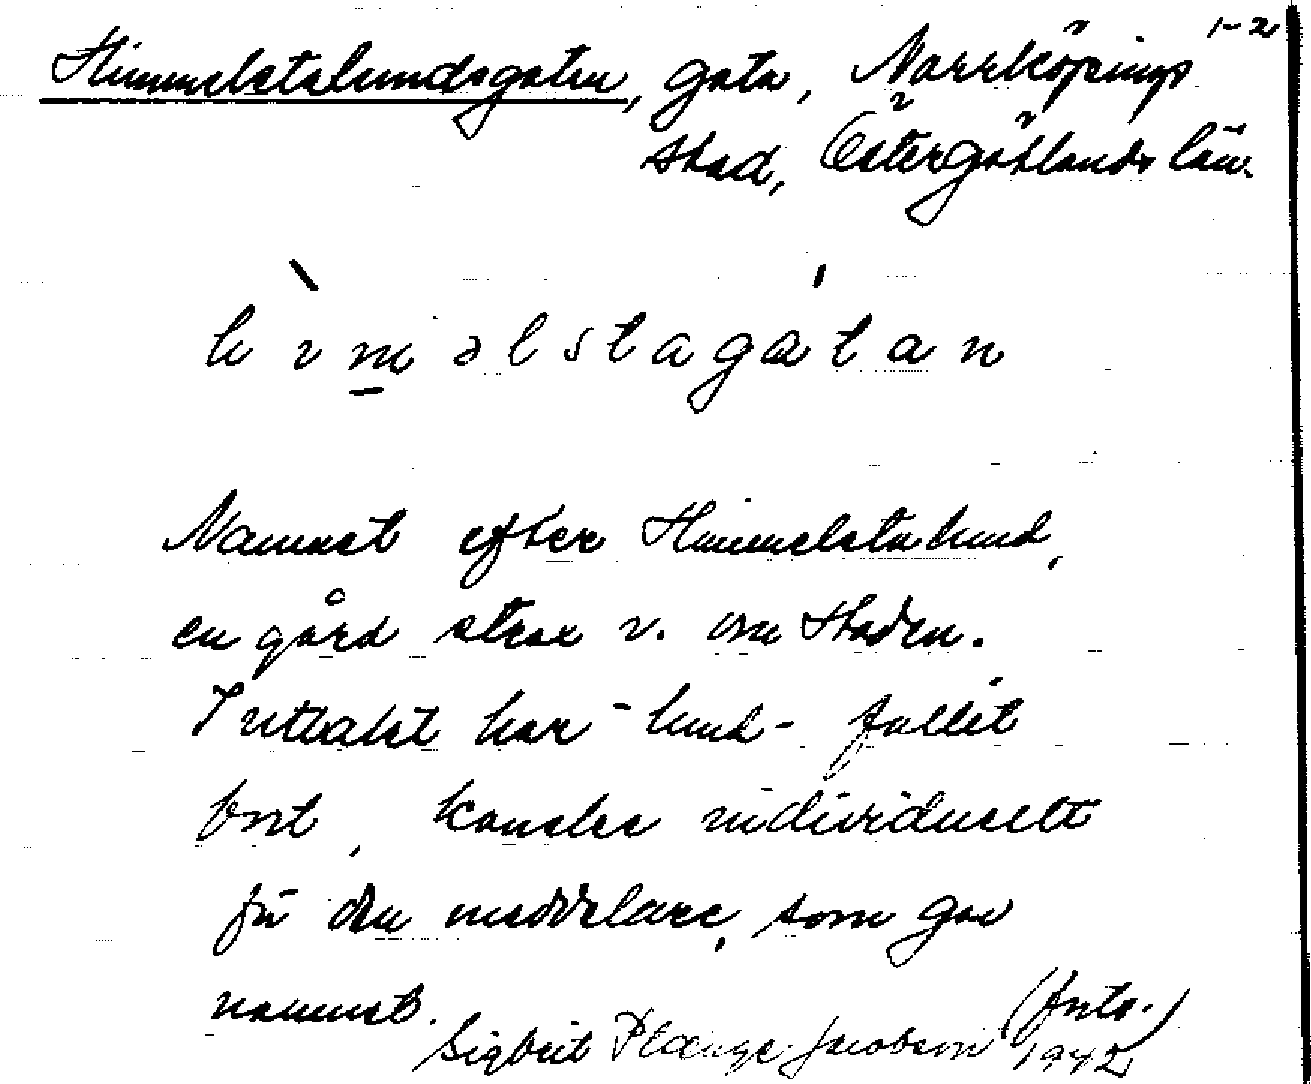 1-2
Himmelstalundsgatan, gata, Norrköpings
stad, Östergötlands län.
hìm̲əlstagátan
Namnet efter Himmelstalund,
en gård strax v. om staden.
I uttalet har -lund- fallit
bort, kanske individuellt
för den meddelare, som gav
namnet.
Sigbrit Plænge Jacobson (forts.)
1942